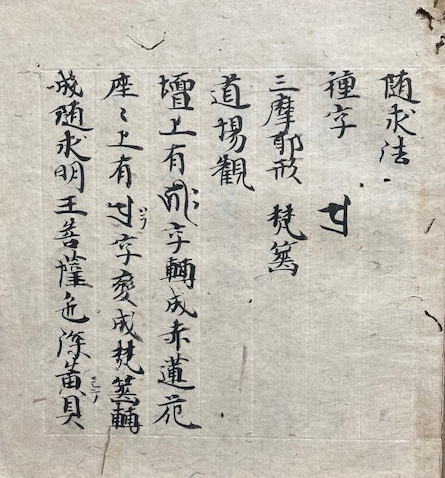 随求法
種字 𑖢𑖿𑖨
三摩耶形 梵篋
道場觀
壇上有𑖮𑖿𑖨𑖱𑖾字轉成赤蓮花
座〻上有字變成梵篋轉
成随求明王菩薩色深黄具